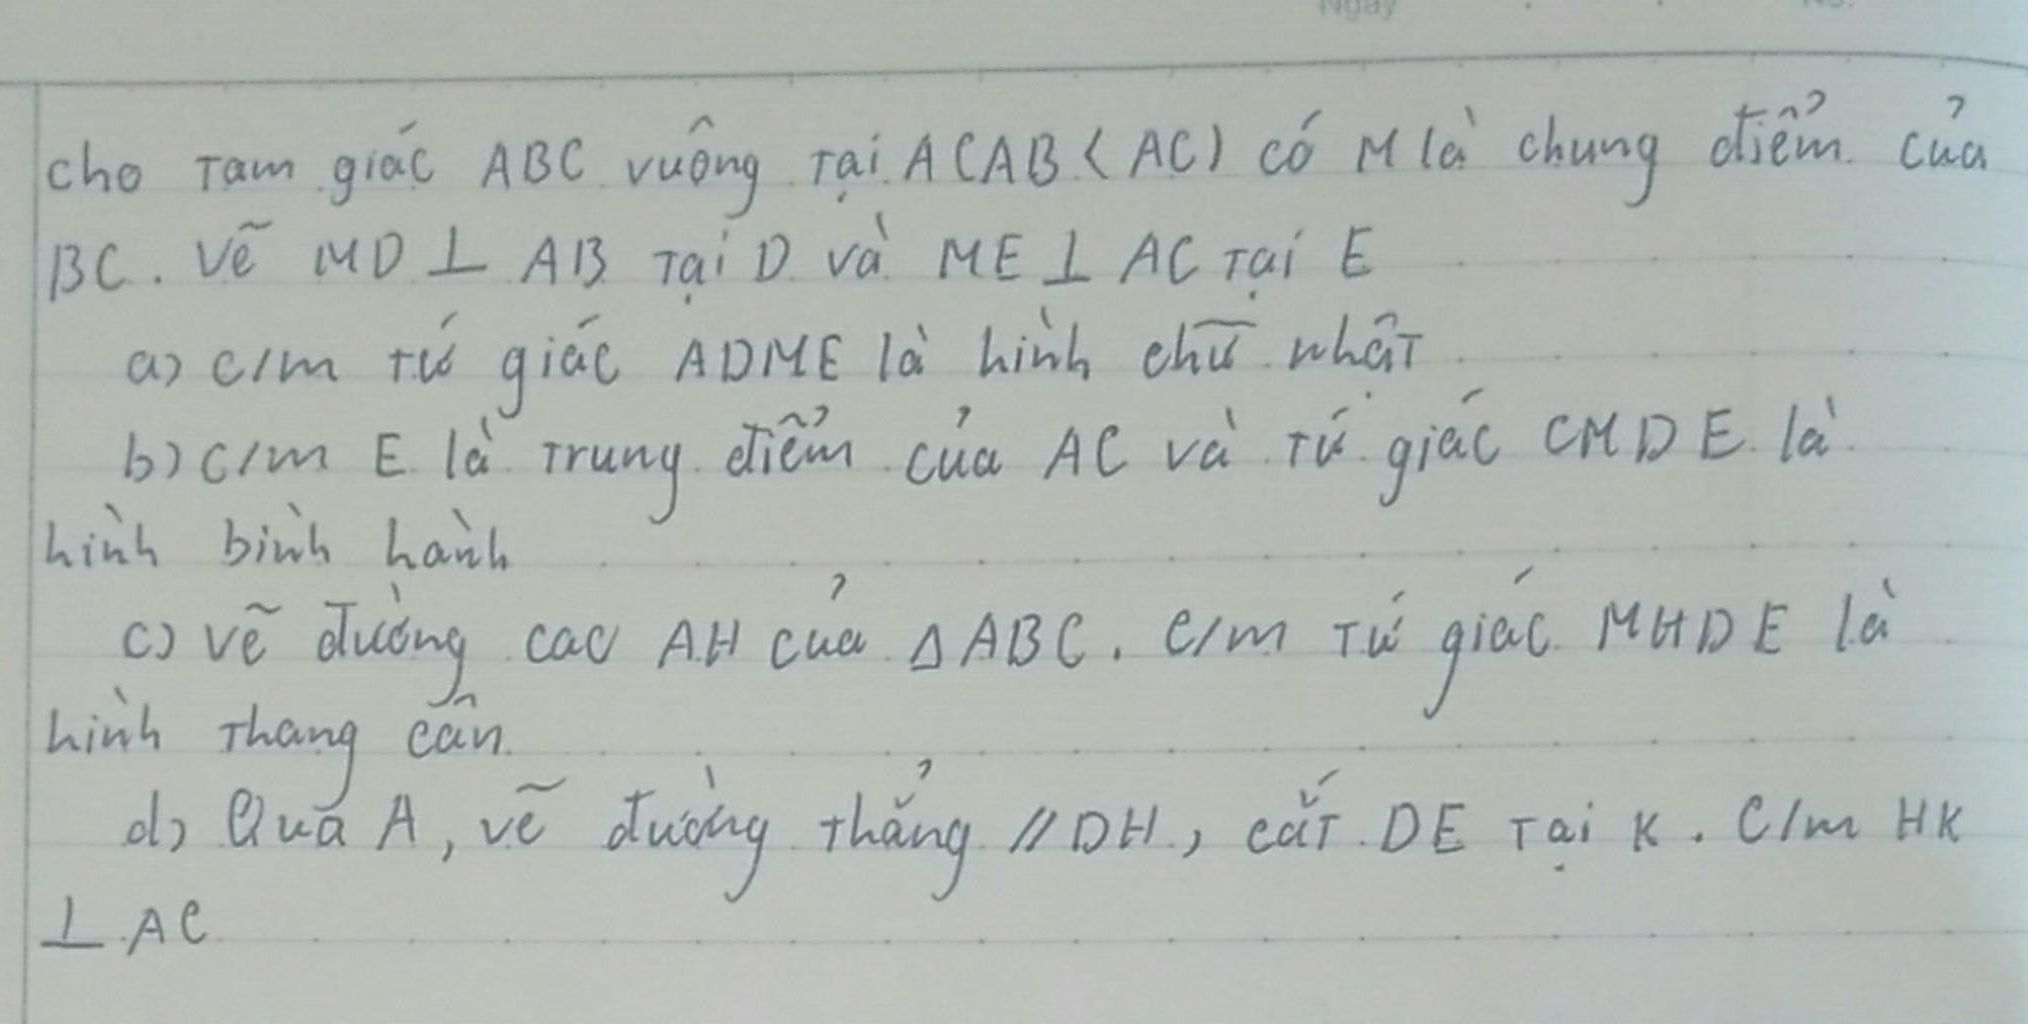 Ngày No.
cho Tam giác ABC vuông Tại A (AB < AC) có M là chung điểm của
BC. Vẽ MD ⊥ AB Tại D và ME ⊥ AC Tại E
a) c/m Tứ giác ADME là hình chữ nhật
b) c/m E là Trung điểm của AC và Tứ giác CMDE là
hình bình hành
c) vẽ đường cao AH của Δ ABC. c/m Tứ giác MHDE là
hình Thang cân
d) Qua A, vẽ đường thẳng // DH, cắt DE Tại K. C/m HK
⊥ AC